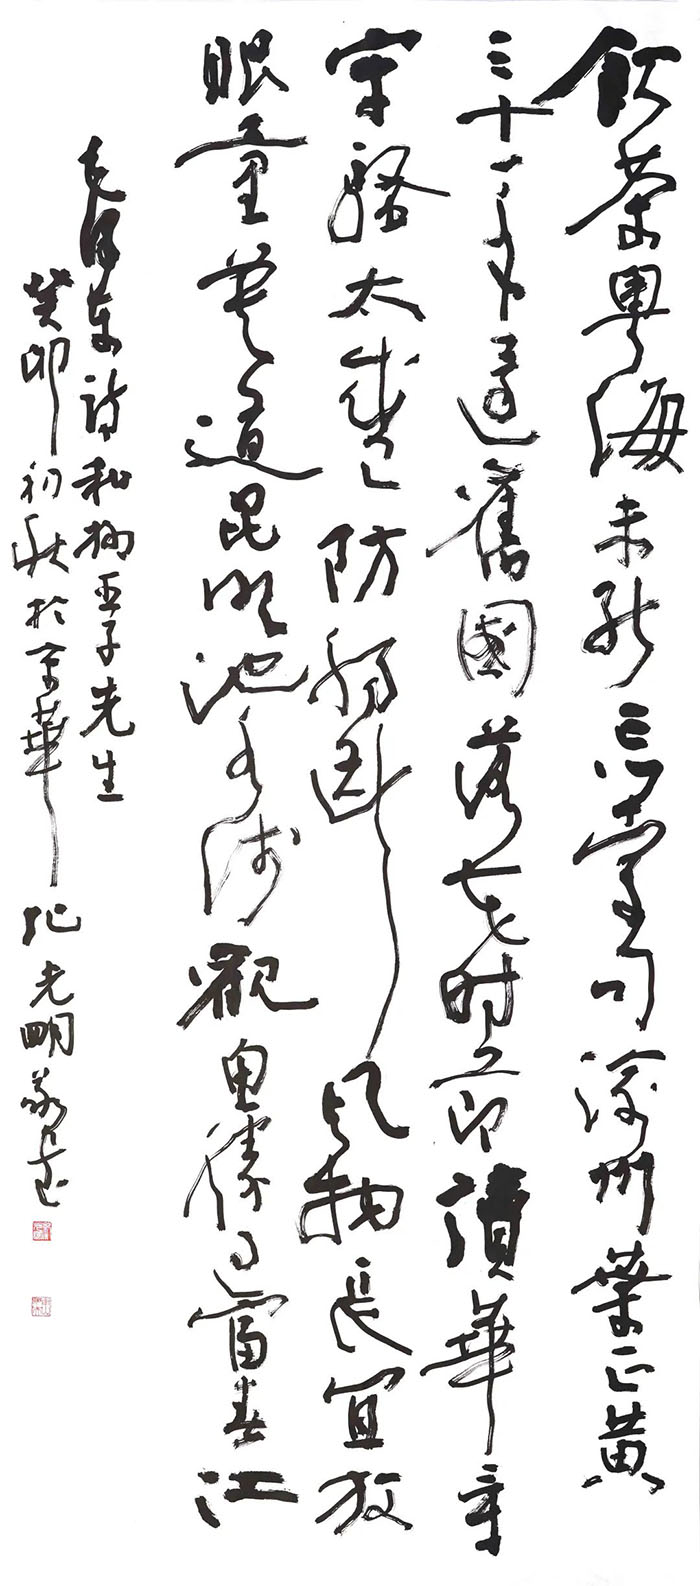 飲茶粵海未能忘索句渝州葉正黄
三十一年還舊國落花時節讀華章
牢騷太盛防腸斷風物長宜放
眼量莫道昆明池水淺觀魚勝過富春江
毛澤東詩和柳亞子先生
癸卯初秋於京華光明敬書